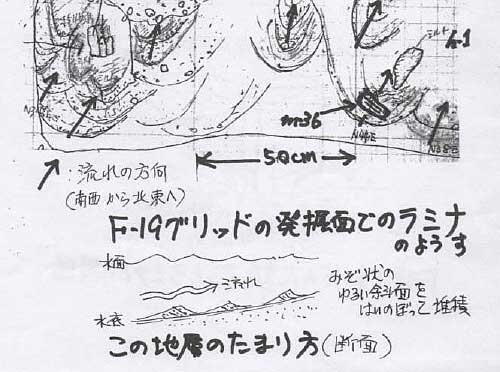 シルト
h-1
m36
N44E
N38E
50cm
:流れの方向
(南西から北東へ)
F-19グリッドの発掘面でのラミナ
のようす
水面
流れ
水底
みぞ状の
ゆるい斜面を
はいのぼって堆積
この地層のたまり方(断面)